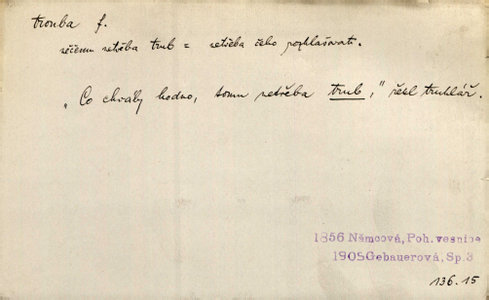 trouba f.
něčemu netřeba trub = netřeba čeho rozhlašovati.
„Co chvály hodno, tomu netřeba trub,“ řekl truhlář.
1856 Němcová, Poh. vesnice
1905 Gebauerová, Sp. 3
136.15